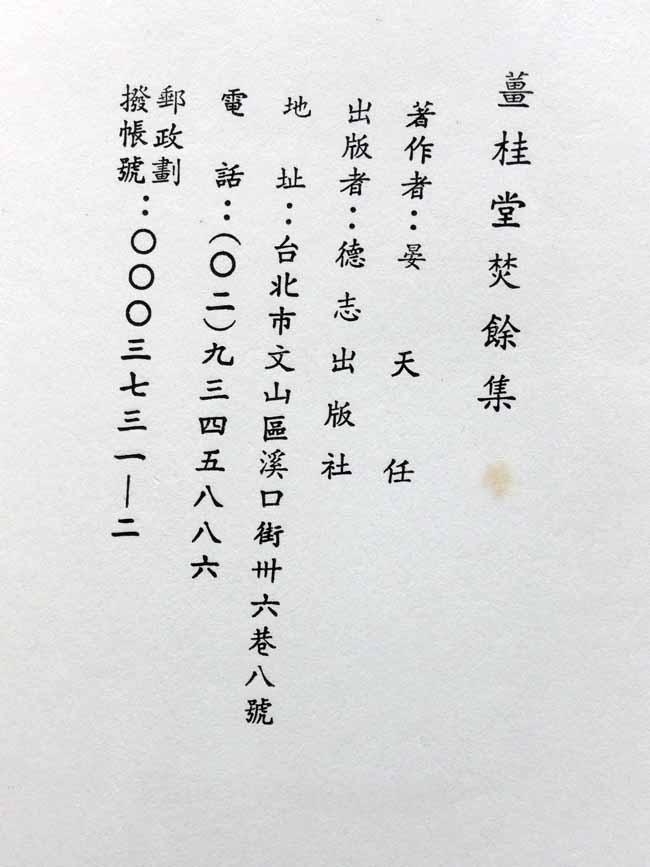 薑桂堂焚餘集
著作者：晏天任
出版者：德志出版社
地址：台北市文山區溪口街卌六巷八號
電話：（〇二）九三四五八八六
郵政劃
撥帳號：〇〇〇三七三一—二